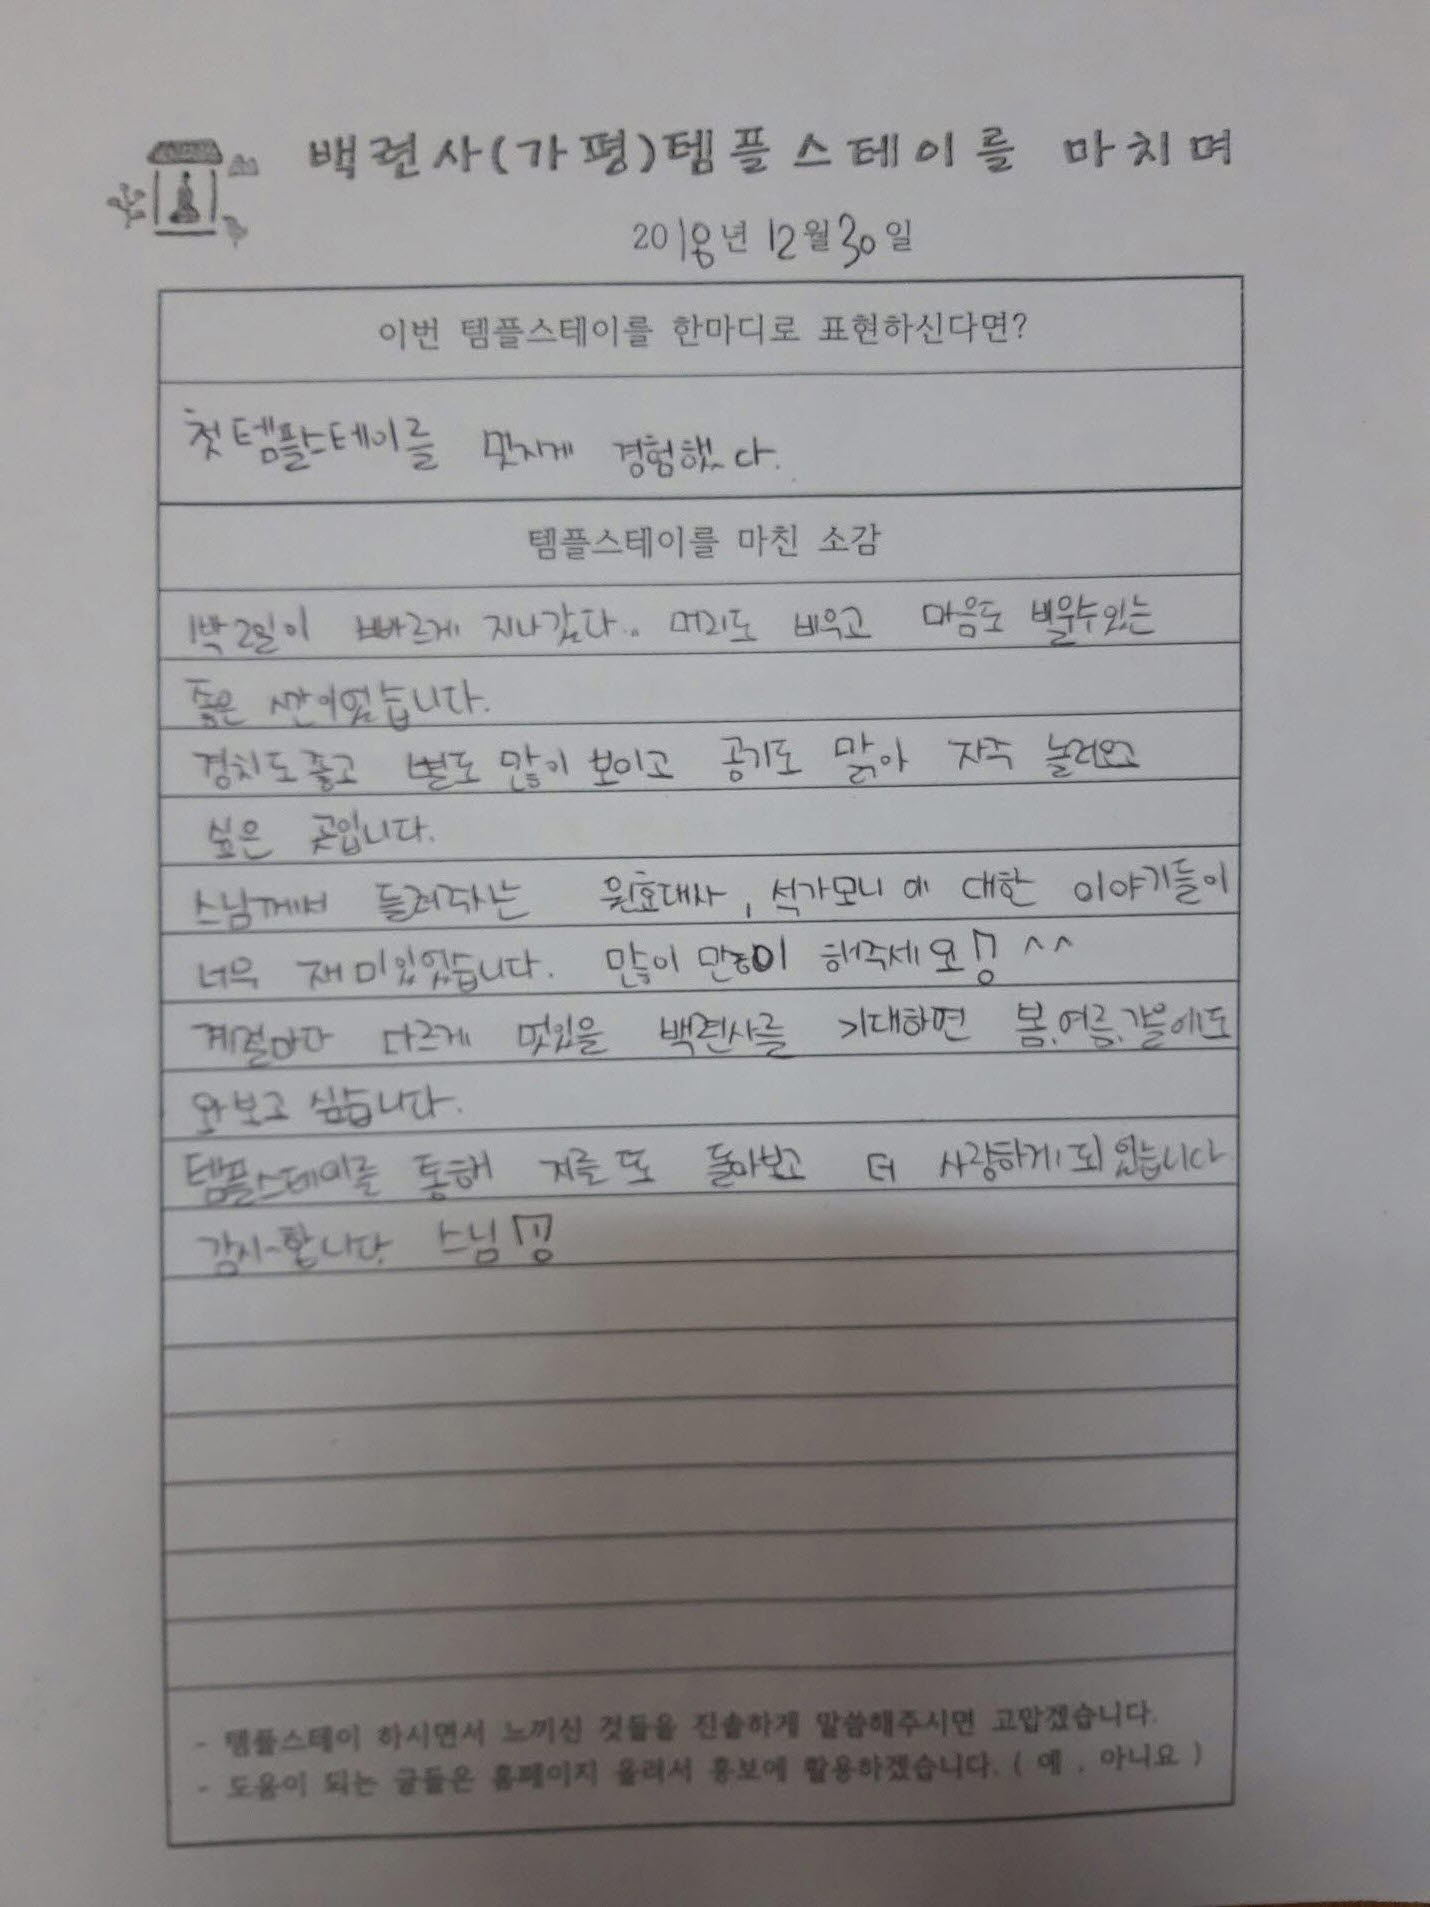 백련사(가평)템플스테이를 마치며
2018년 12월 30일
이번 템플스테이를 한마디로 표현하신다면?
첫템플스테이를 멋지게 경험했다.
템플스테이를 마친 소감
1박2일이 빠르게 지나갔다.. 머리도 비우고 마음도 비울수있는
좋은 시간이었습니다.
경치도좋고 별도 많이 보이고 공기도 맑아 자주 놀러오고
싶은 곳입니다.
스님께서 들려주는 원효대사, 석가모니에 대한 이야기들이
너무 재미있었습니다. 많이 많이 해주세요!! ^^
계절마다 다르게 멋있을 백련사를 기대하면 봄,여름,가을에도
와보고 싶습니다.
템플스테이를 통해 저를 또 돌아보고 더 사랑하게되었습니다
감사합니다. 스님!!
- 템플스테이 하시면서 느끼신 것들을 진솔하게 말씀해주시면 고맙겠습니다.
- 도움이 되는 글들은 홈페이지 올려서 홍보에 활용하겠습니다. ( 예 , 아니요 )